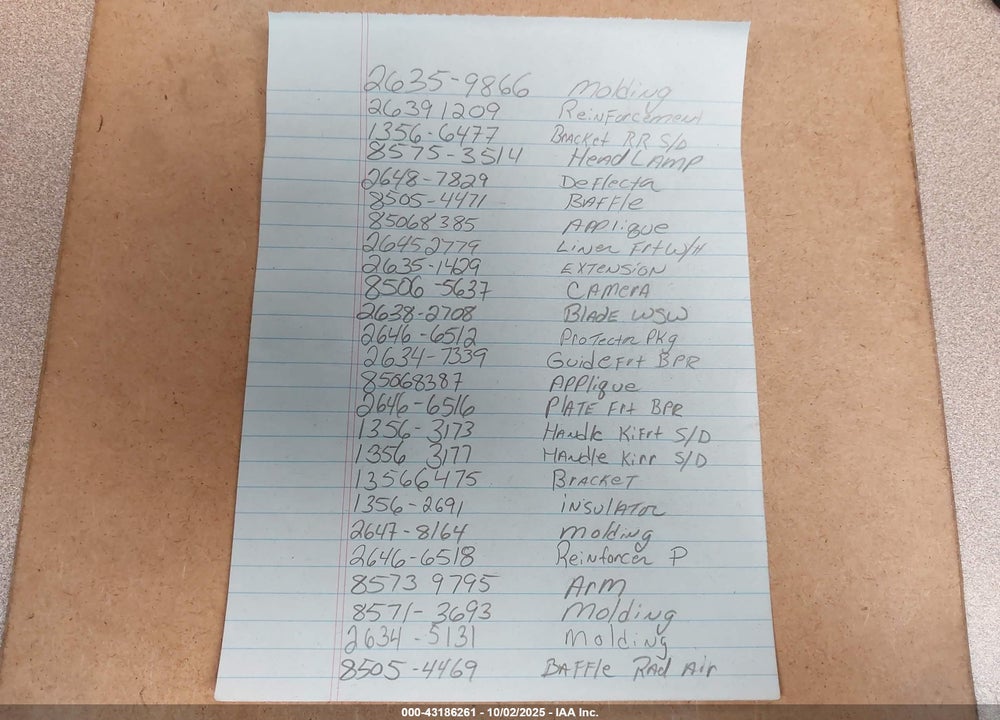 2635-9866 Molding
26391209 Reinforcement
1356-6477 Bracket RR S/D
8575-3514 HeadLAMP
2648-7829 Deflector
8505-4471 BAFFle
85068385 APPlique
26452779 Liner Frt W/H
2635-1429 EXTENSION
8506-5637 CAMERA
2638-2708 BlADE WSW
2646-6512 Protector PKg
2634-7339 Guide Frt BPR
85068387 APPlique
2646-6516 PlATE Frt BPR
1356-3173 Handle Kifrt S/D
1356 3177 HAndle Kirr S/D
13566475 BrACKET
1356-2691 iNSUlATOr
2647-8164 Molding
2646-6518 Reinforcer P
8573 9795 Arm
8571-3693 Molding
2634-5131 Molding
8505-4469 BAFFle Rad Air
000-43186261 - 10/02/2025 - IAA Inc.